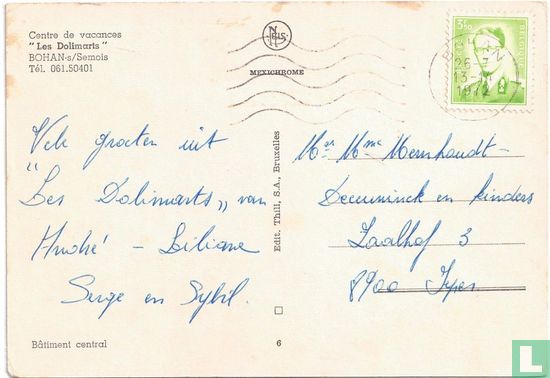 Centre de vacances
"Les Dolimarts"
BOHAN-s/Semois
Tél. 061.50401
NELS
MEXICHROME
3F50
BELGIQUE
26-7
13-
1972
Vele groeten uit
"Les Dolimarts" van
André - Liliane
Serge en Sybil.
Edit. Thill, S.A., Bruxelles
Mr Mme Mernhoudt -
Deceuninck en kinders
Zaalhof 3
8900 Ieper
Bâtiment central
6
catawiki